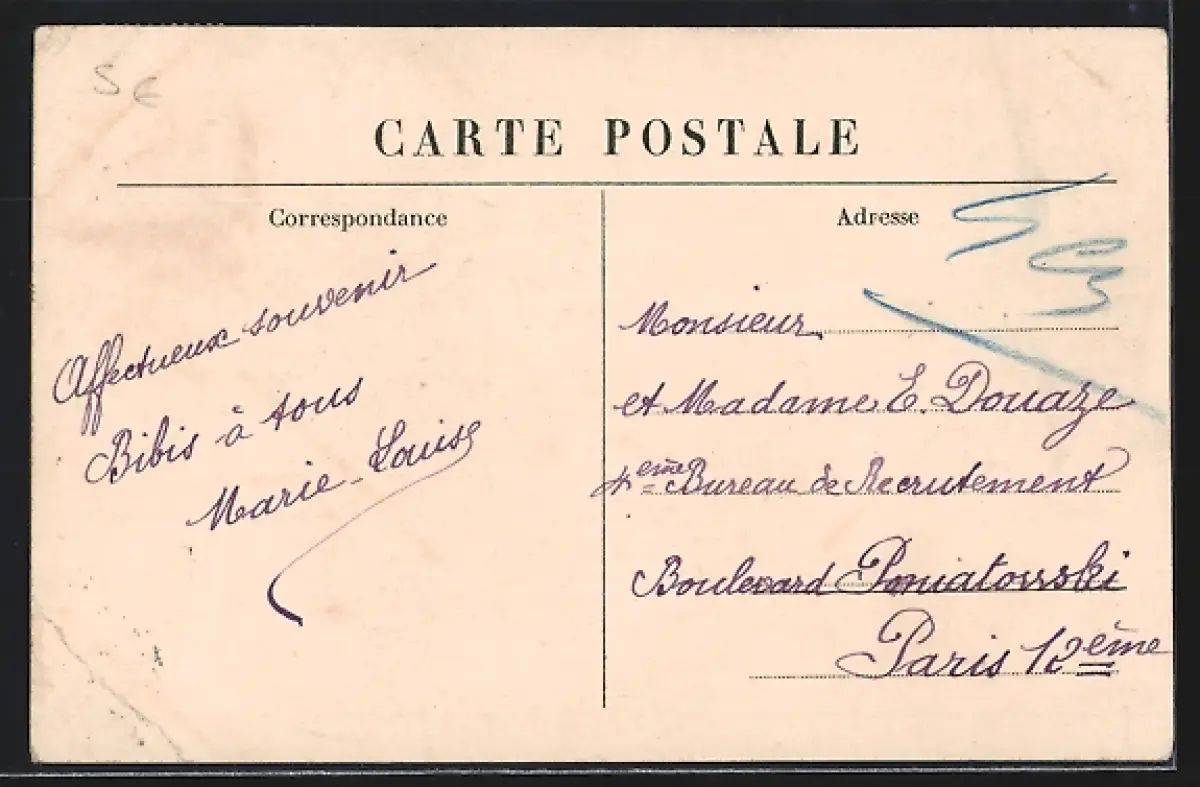 5 €
CARTE POSTALE
Correspondance
Affectueux souvenir
Bibis à tous
Marie-Louise
Adresse
Monsieur
et Madame E. Douaze
4ème Bureau de Recrutement
Boulevard Poniatowski
Paris 12ème